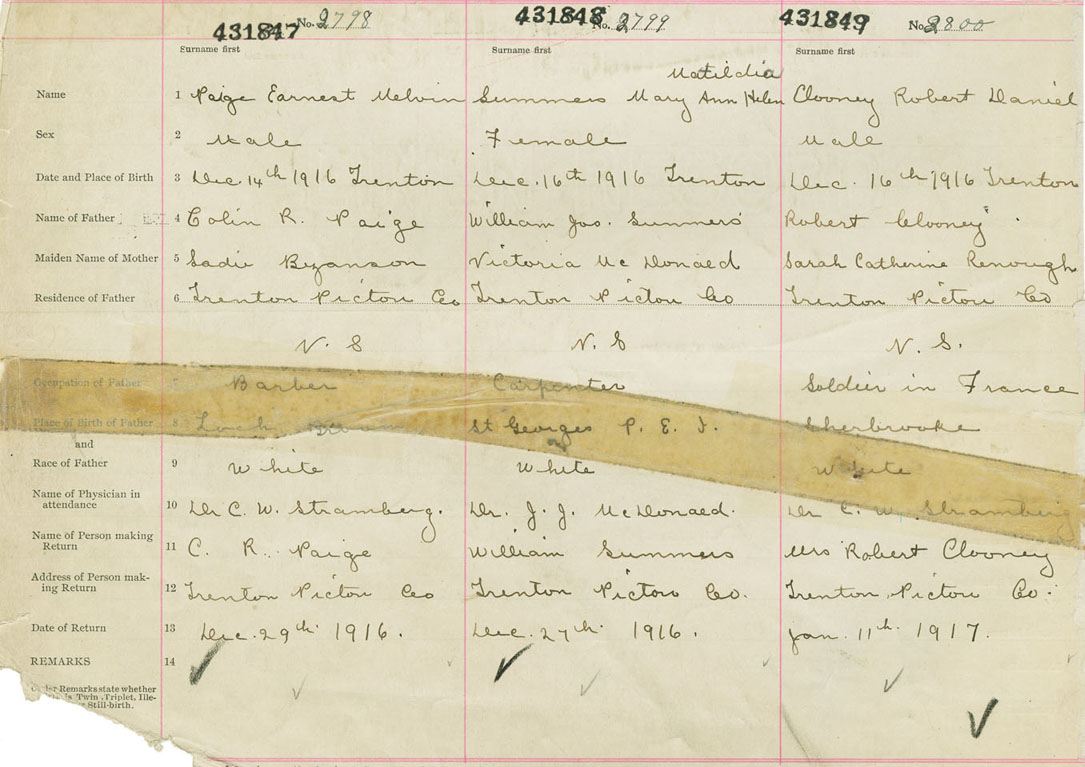 431847 No. 2798 431848 No. 2799 431849 No. 2800
Surname first Surname first Surname first
Matildia
Name 1 Paige Earnest Melvin Summers Mary Ann Helen Clooney Robert Daniel
Sex 2 Male Female Male
Date and Place of Birth 3 Dec. 14th 1916 Trenton Dec. 16th 1916 Trenton Dec. 16th 1916 Trenton
Name of Father 4 Colin R. Paige William Jos. Summers Robert Clooney
Maiden Name of Mother 5 Sadie Byanson Victoria McDonald Sarah Catherine Renough
Residence of Father 6 Trenton Pictou Co Trenton Pictou Co Trenton Pictou Co
N. S N. S N. S.
Occupation of Father 7 Barber Carpenter Soldier in France
Place of Birth of Father 8 Loch St Georges P. E. I. Sherbrooke
and
Race of Father 9 White White White
Name of Physician in
attendance 10 Dr C. W. Stramberg. Dr. J. J. McDonald. Dr C. W. Stramberg
Name of Person making
Return 11 C. R. Paige William Summers Mrs Robert Clooney
Address of Person mak-
ing Return 12 Trenton Pictou Co Trenton Pictou Co. Trenton, Pictou Co.
Date of Return 13 Dec. 29th 1916. Dec. 27th 1916. Jan. 11th 1917.
REMARKS 14
Under Remarks state whether
is Twin, Triplet, Ille-
Still-birth.